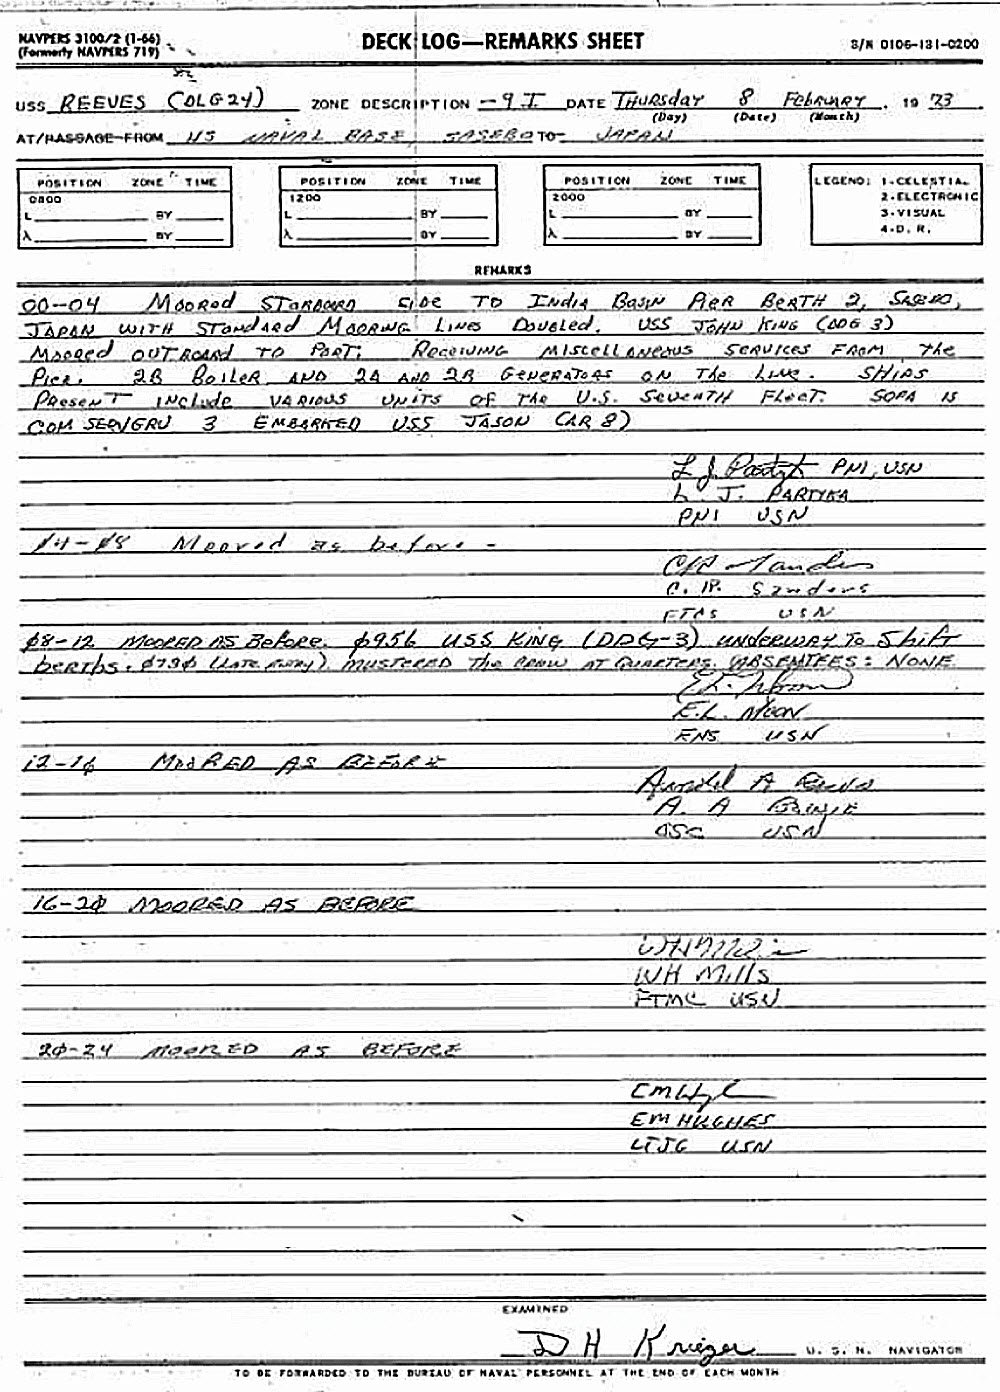 NAVPERS 3100/2 (1-66)
(Formerly NAVPERS 719)
DECK LOG—REMARKS SHEET
S/N 0106-131-0200
USS REEVES (DLG24) ZONE DESCRIPTION -9 I DATE THURSDAY 8 FEBRUARY, 19 73
(Day) (Date) (Month)
AT/PASSAGE FROM US NAVAL BASE, SASEBO TO JAPAN
POSITION ZONE TIME
0800
L BY
λ BY
POSITION ZONE TIME
1200
L BY
λ BY
POSITION ZONE TIME
2000
L BY
λ BY
LEGEND: 1-CELESTIAL
2-ELECTRONIC
3-VISUAL
4-D. R.
REMARKS
00-04 MOORED STARBOARD SIDE TO INDIA BASIN PIER BERTH 2, SASEBO,
JAPAN WITH STANDARD MOORING LINES DOUBLED. USS JOHN KING (DDG 3)
MOORED OUTBOARD TO PORT; RECEIVING MISCELLANEOUS SERVICES FROM THE
PIER. 2B BOILER AND 2A AND 2B GENERATORS ON THE LINE. SHIPS
PRESENT INCLUDE VARIOUS UNITS OF THE U.S. SEVENTH FLEET. SOPA IS
COM SERVGRU 3 EMBARKED USS JASON (AR 8)
PN1, USN
L. J. PARTYKA
PN1 USN
Ø4-Ø8 Moored as before -
C. R. Sanders
FTCS USN
Ø8-12 MOORED AS BEFORE. Ø956 USS KING (DDG-3) UNDERWAY TO SHIFT
BERTHS. Ø73Ø (LATE ENTRY) MUSTERED THE CREW AT QUARTERS. ABSENTEES: NONE
E.L. MOON
ENS USN
12-16 MOORED AS BEFORE
Arnold A
A. A
OSC USN
16-2Ø MOORED AS BEFORE
WH Mills
FTMC USN
2Ø-24 MOORED AS BEFORE
EM HUGHES
LTJG USN
EXAMINED
D H Krieger U. S. N. NAVIGATOR
TO BE FORWARDED TO THE BUREAU OF NAVAL PERSONNEL AT THE END OF EACH MONTH